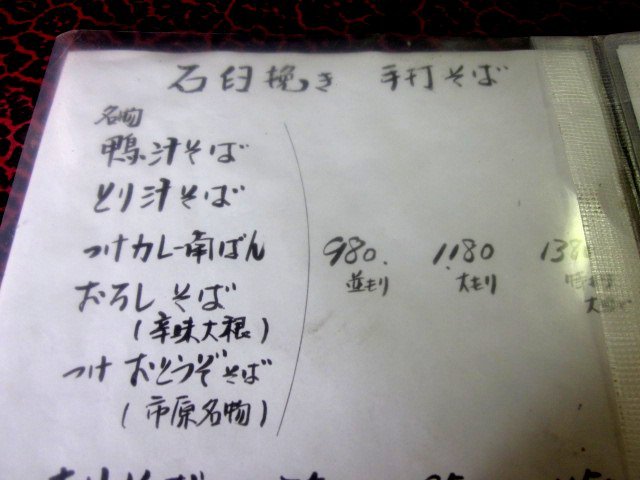 石臼挽き 手打そば
名物
鴨汁そば
とり汁そば
つけカレー南ばん 980. 1.180
並もり 大もり
おろしそば
(辛味大根)
つけ おとうぞそば
(市原名物)